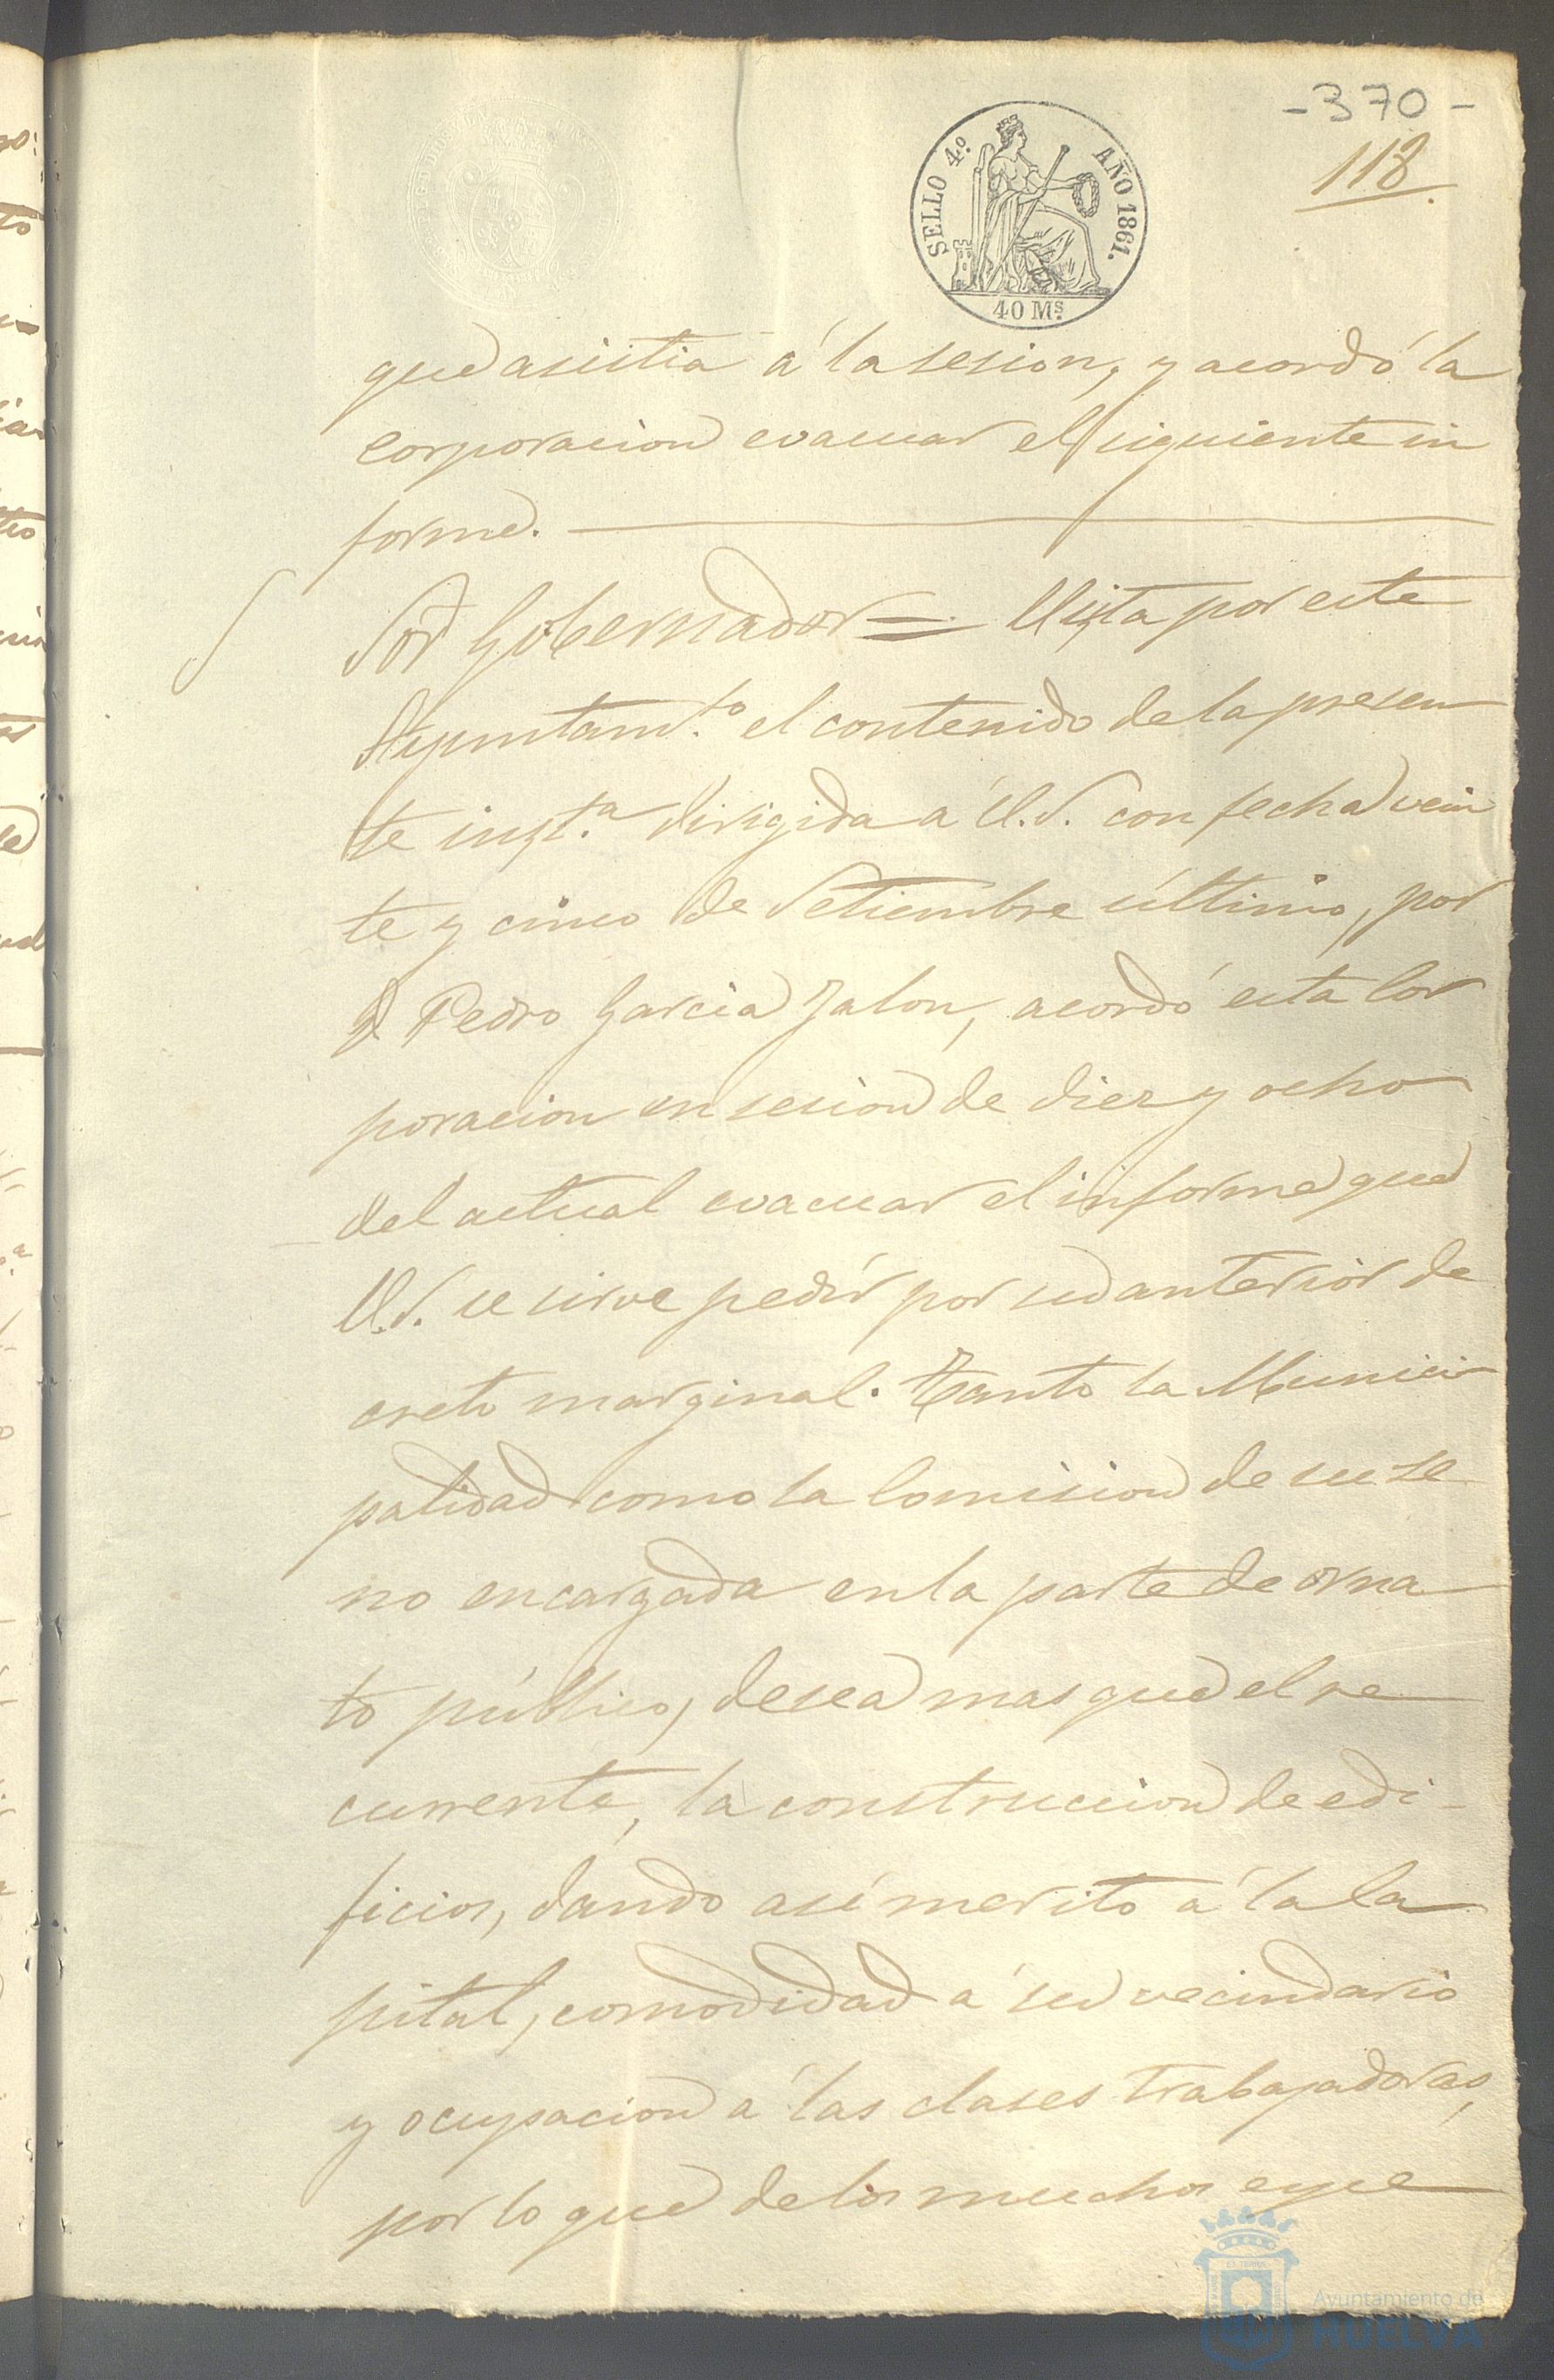 -370-
118.
SELLO 4.º AÑO 1861.
40 Mˢ
que asistia á la sesion, y acordó la
corporacion evacuar el siguiente in
forme.
Sor Gobernador = Vista por este
Ayuntam.to el contenido de la presen
te inst.a dirigida á V.S. con fecha vein
te y cinco de Setiembre último, por
D Pedro Garcia Jalon, acordó esta Cor
poracion en sesion de diez y ocho
del actual evacuar el informe que
V.S. se sirve pedir por su anterior de
creto marginal. Tanto la Munici
palidad como la Comision de su se
no encargada en la parte de orna
to público, desea mas que el re
currente, la construccion de edi-
ficios, dando asi merito á la Ca
pital, comodidad á su vecindario
y ocupacion á las clases trabajadoras,
por lo que de los muchos espe
Ayuntamiento de
HUELVA